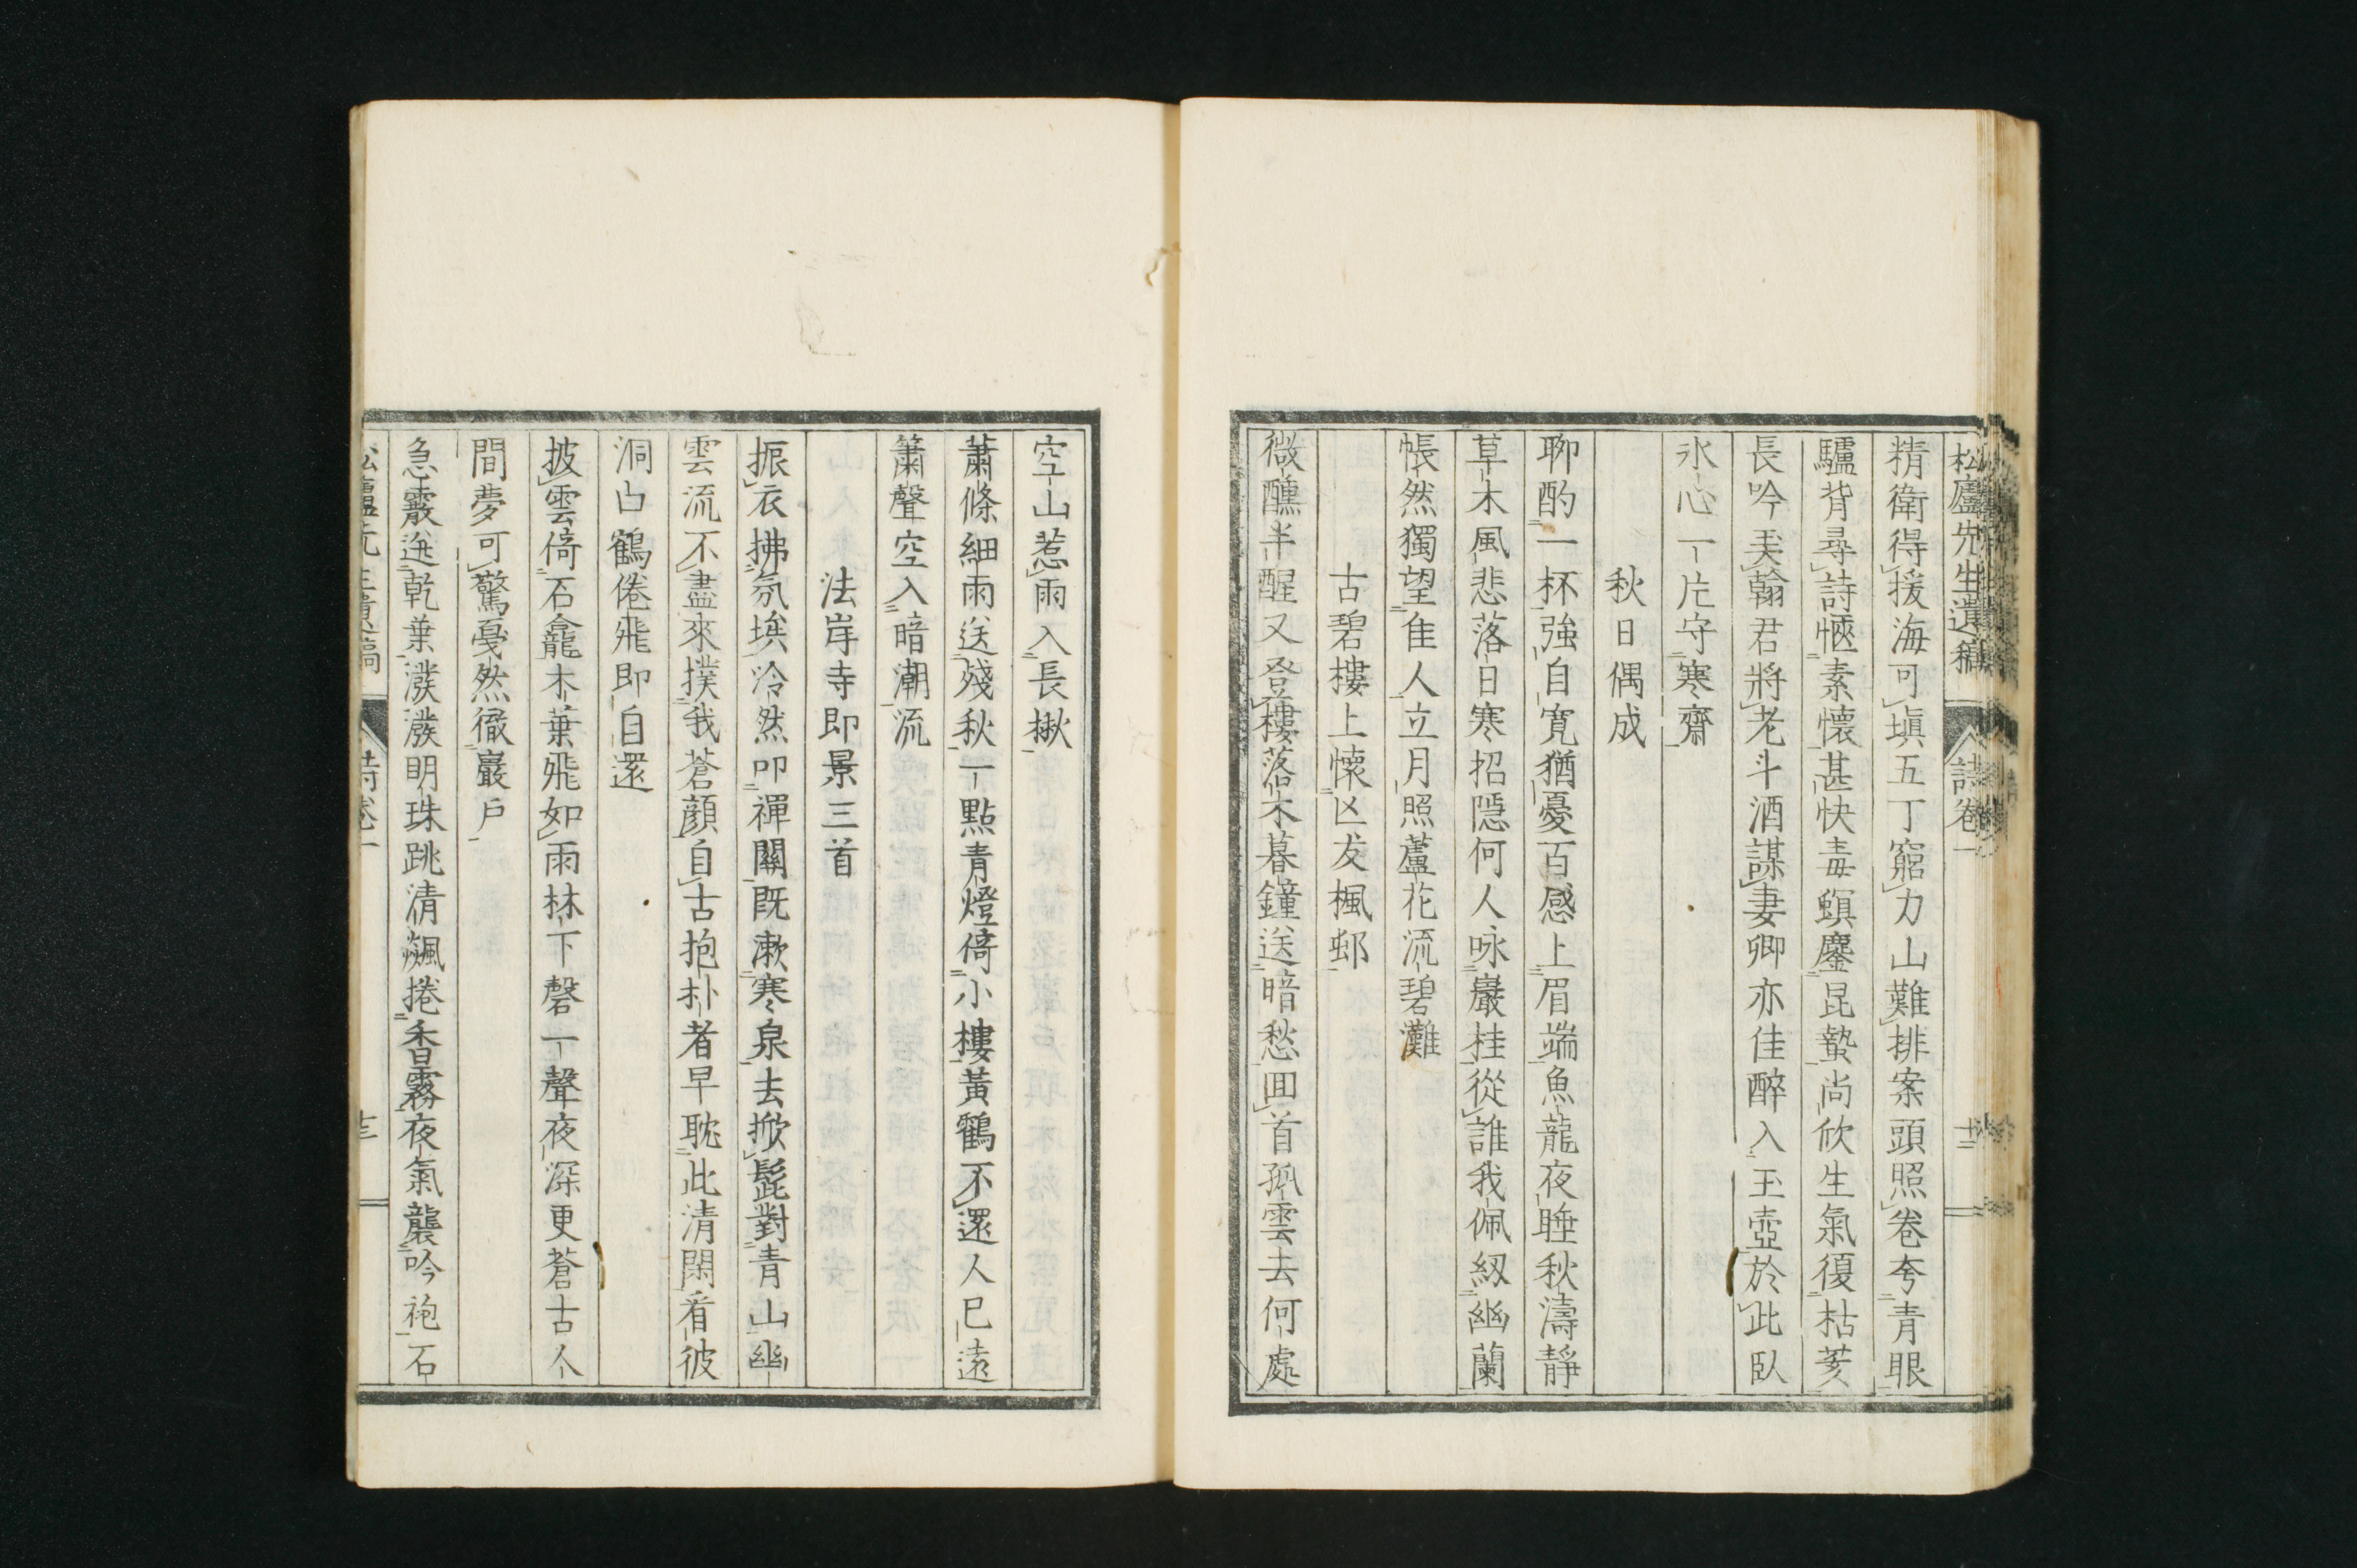 松廬先生遺稿 詩卷一 十二
精衛得援海可塡五丁窮力山難排案頭照卷夸青眼
驢背尋詩愜素懷甚快毒螟鏖昆蟄尚欣生氣復枯荄
長吟美翰君將老斗酒謀妻卿亦佳醉入玉壺於此臥
氷心一片守寒齋
秋日偶成
聊酌一杯強自寬猶憂百感上眉端魚龍夜睡秋濤靜
草木風悲落日寒招隱何人咏巖桂從誰我佩紉幽蘭
悵然獨望佳人立月照蘆花流碧灘
古碧樓上懷亡友楓邨
微醺半醒又登樓落木暮鐘送暗愁囬首孤雲去何處
空山惹雨入長楸
蕭條細雨送殘秋一點青燈倚小樓黃鶴不還人已遠
簫聲空入暗潮流
法岸寺即景三首
振衣拂氛埃泠然叩禪關既漱寒泉去掀髭對青山幽
雲流不盡來撲我蒼顔自古抱朴者早耽此清閑看彼
洞口鶴倦飛即自還
披雲倚石龕木葉飛如雨林下磬一聲夜深更蒼古人
間夢可驚戛然徹巖戶
急霰迸乾葉濺濺明珠跳清飆捲香霧夜氣襲吟袍石
松廬先生遺稿 詩卷一 十三